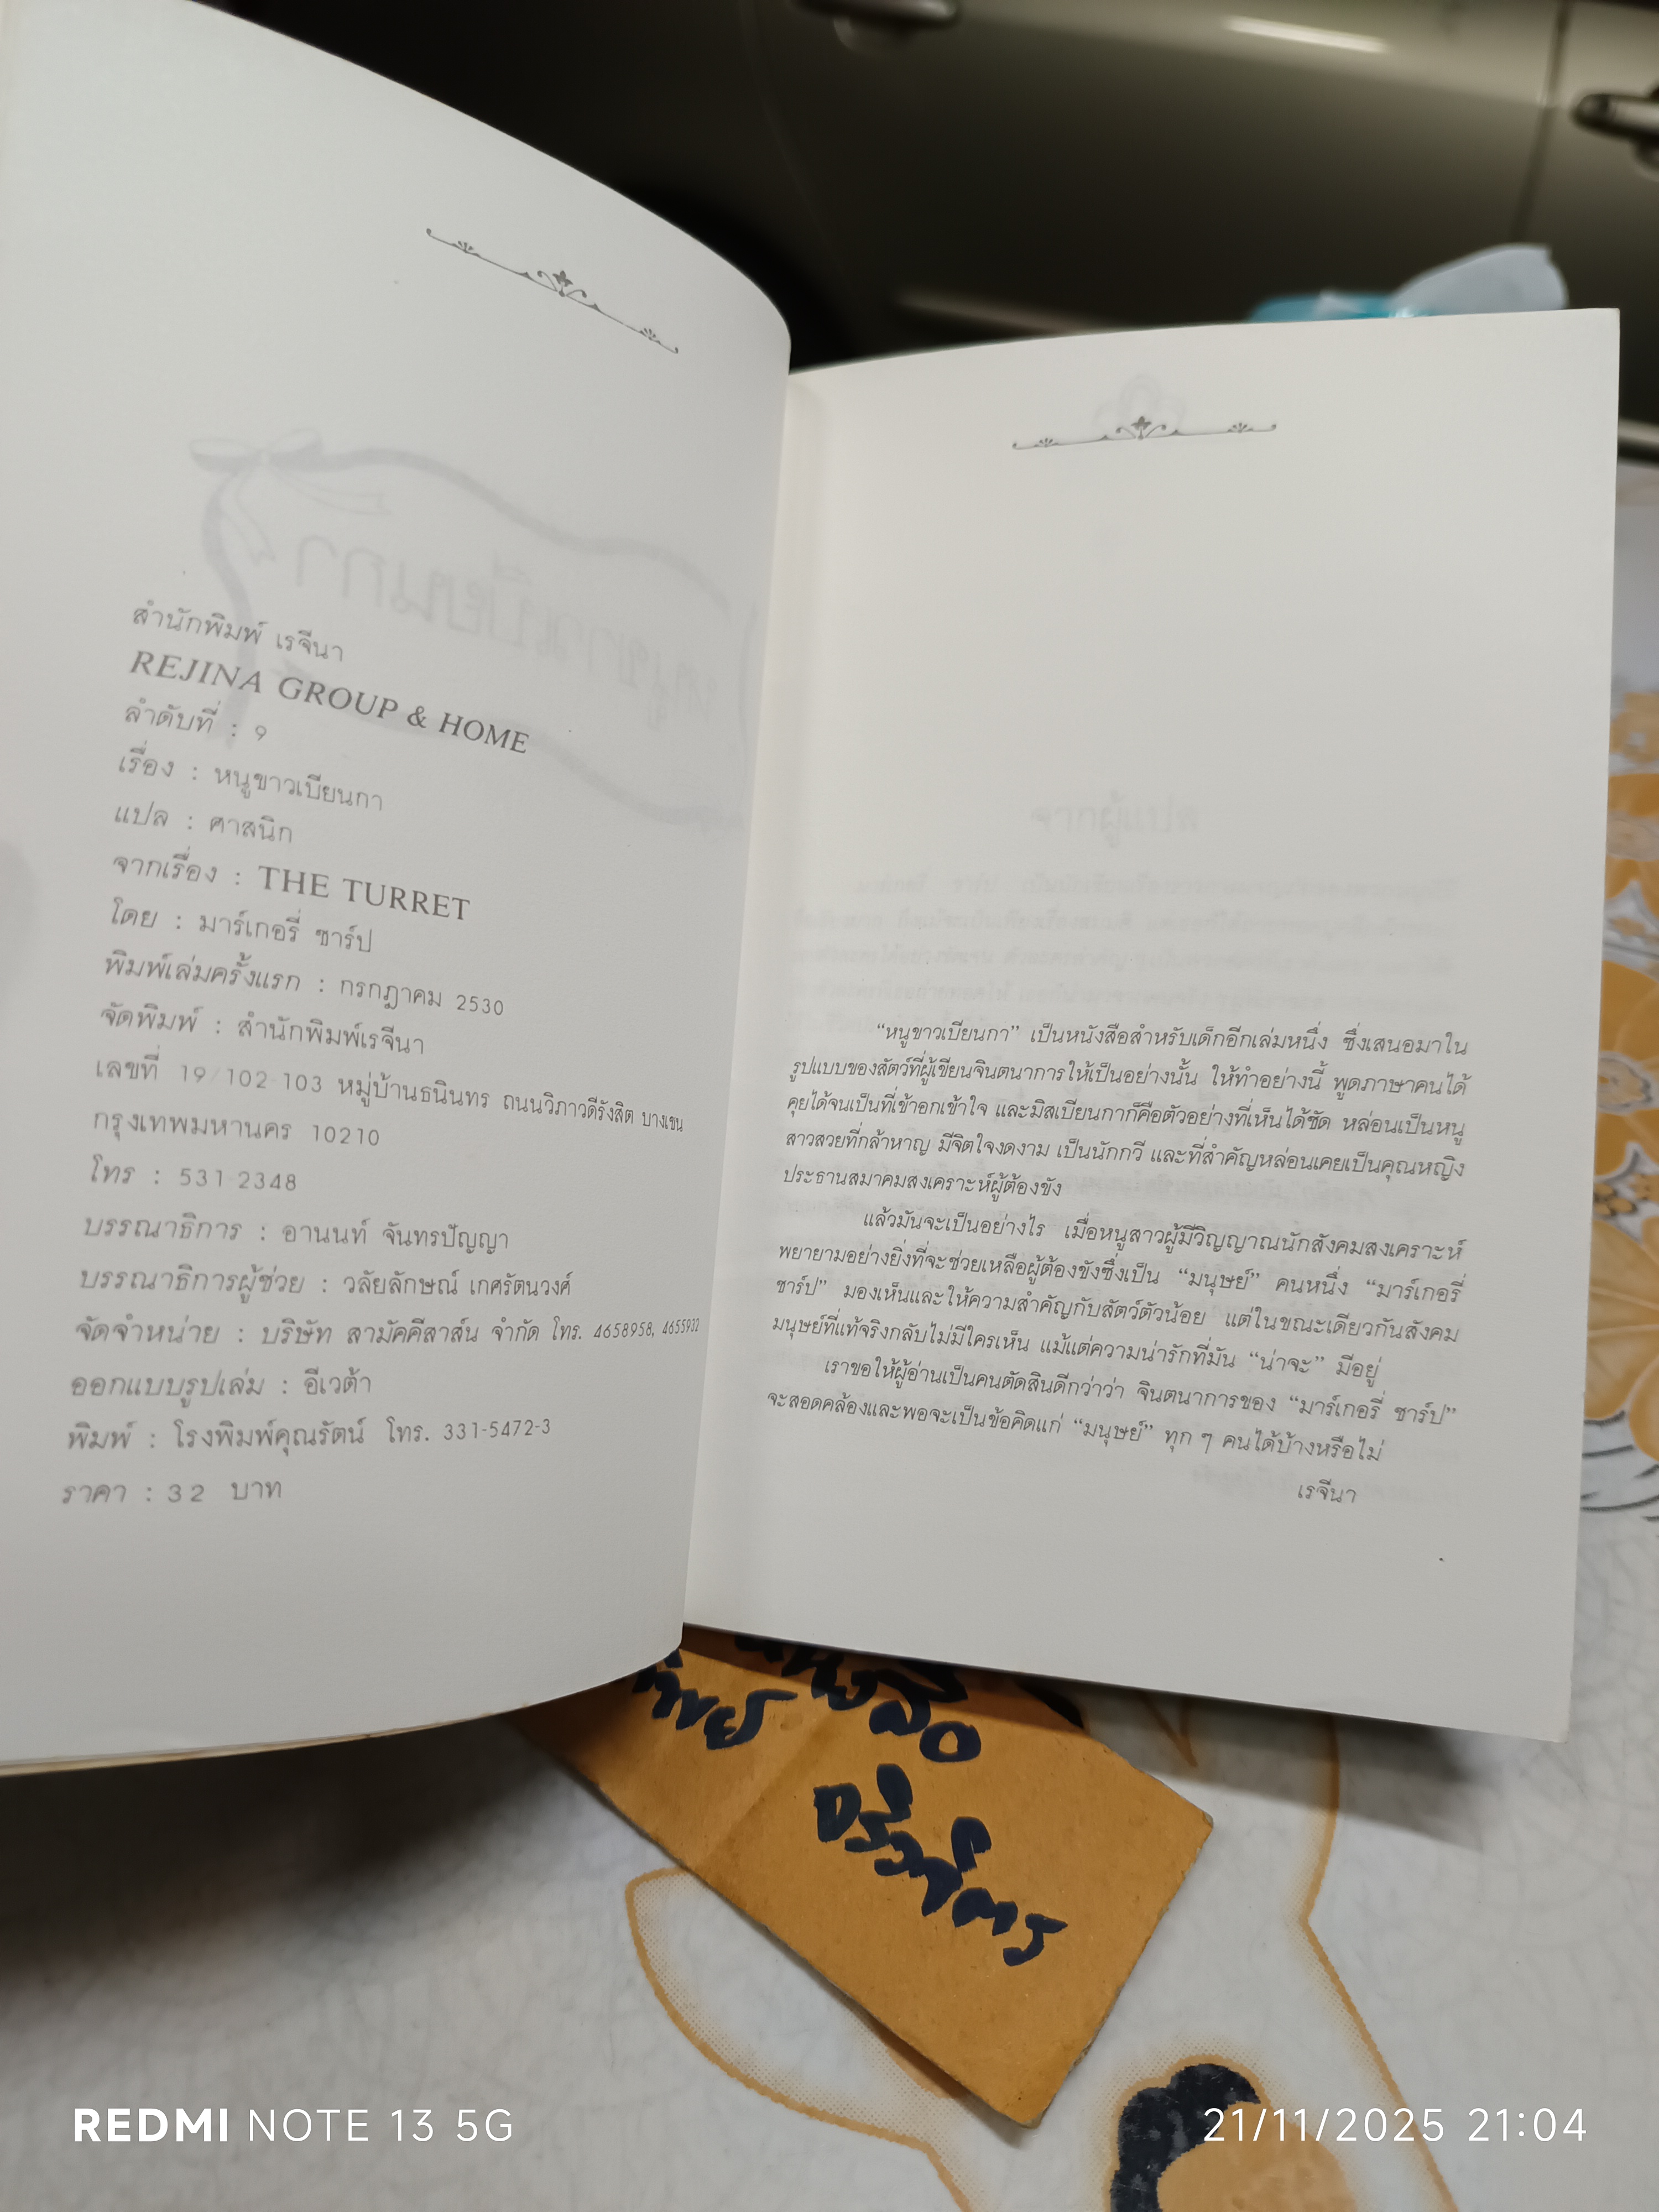 สำนักพิมพ์ เรจีนา
REJINA GROUP & HOME
ลำดับที่ : 9
เรื่อง : หนูขาวเบียนกา
แปล : ศาสนิก
จากเรื่อง : THE TURRET
โดย : มาร์เกอรี่ ชาร์ป
พิมพ์เล่มครั้งแรก : กรกฎาคม 2530
จัดพิมพ์ : สำนักพิมพ์เรจีนา
เลขที่ 19/102-103 หมู่บ้านธนินทร ถนนวิภาวดีรังสิต บางเขน
กรุงเทพมหานคร 10210
โทร : 531-2348
บรรณาธิการ : อานนท์ จันทรปัญญา
บรรณาธิการผู้ช่วย : วลัยลักษณ์ เกศรัตนวงศ์
จัดจำหน่าย : บริษัท สามัคคีสาส์น จำกัด โทร. 4658958, 4655932
ออกแบบรูปเล่ม : อีเวต้า
พิมพ์ : โรงพิมพ์คุณรัตน์ โทร. 331-5472-3
ราคา : 32 บาท
“หนูขาวเบียนกา” เป็นหนังสือสำหรับเด็กอีกเล่มหนึ่ง ซึ่งเสนอมาใน
รูปแบบของสัตว์ที่ผู้เขียนจินตนาการให้เป็นอย่างนั้น ให้ทำอย่างนี้ พูดภาษาคนได้
คุยได้จนเป็นที่เข้าอกเข้าใจ และมิสเบียนกาก็คือตัวอย่างที่เห็นได้ชัด หล่อนเป็นหนู
สาวสวยที่กล้าหาญ มีจิตใจงดงาม เป็นนักกวี และที่สำคัญหล่อนเคยเป็นคุณหญิง
ประธานสมาคมสงเคราะห์ผู้ต้องขัง
แล้วมันจะเป็นอย่างไร เมื่อหนูสาวผู้มีวิญญาณนักสังคมสงเคราะห์
พยายามอย่างยิ่งที่จะช่วยเหลือผู้ต้องขังซึ่งเป็น “มนุษย์” คนหนึ่ง “มาร์เกอรี่
ชาร์ป” มองเห็นและให้ความสำคัญกับสัตว์ตัวน้อย แต่ในขณะเดียวกันสังคม
มนุษย์ที่แท้จริงกลับไม่มีใครเห็น แม้แต่ความน่ารักที่มัน “น่าจะ” มีอยู่
เราขอให้ผู้อ่านเป็นคนตัดสินดีกว่าว่า จินตนาการของ “มาร์เกอรี่ ชาร์ป”
จะสอดคล้องและพอจะเป็นข้อคิดแก่ “มนุษย์” ทุก ๆ คนได้บ้างหรือไม่
เรจีนา
REDMI NOTE 13 5G
21/11/2025 21:04